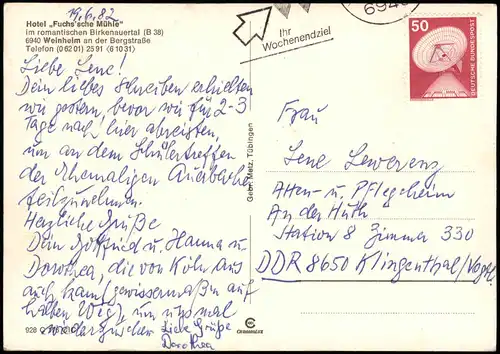 19.6.82
Hotel „Fuchs'sche Mühle"
im romantischen Birkenauertal (B 38)
6940 Weinheim an der Bergstraße
Telefon (0 62 01) 25 91 (6 10 31)
Liebe Lene!
Dein liebes Schreiben erhielten
wir gestern, bevor wir für 2-3
Tage nach hier abreisten,
um an dem Schülertreffen
der Ehemaligen Auerbacher
teilzunehmen.
Herzliche Grüße
Dein Gottfried u. Hanna u.
Dorothea, die von Köln aus
auch kam (gewissermaßen auf
halben Weg), um uns mal
wiederzusehen. Liebe Grüße
Dorothea
928
Gebr. Metz, Tübingen
CHROMOLUX
Ihr
Wochenendziel
6940
50
DEUTSCHE BUNDESPOST
Frau
Lene Lewerenz
Alten- u. Pflegeheim
An der Huth
Station 8 Zimmer 330
DDR 8650 Klingenthal/Vogtl.